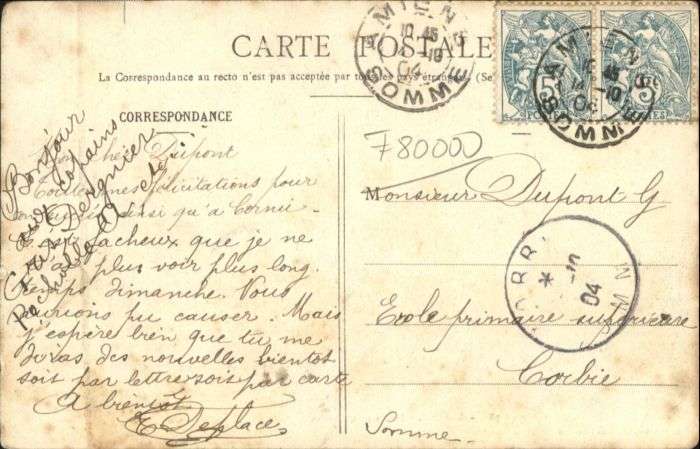 CARTE POSTALE
La Correspondance au recto n'est pas acceptée par tous les pays étrangers (Se
CORRESPONDANCE
AMIENS
10 45
10
04
SOMME
AMIENS
04
SOMME
5
POSTES
780000
Mon cher Dupont
Toutes mes félicitations pour
ainsi qu'à Cornu
fâcheux que je ne
t'ai plus voir plus long
temps dimanche. Nous
aurions pu causer. Mais
j'espère bien que tu me
diras des nouvelles bientot
soit par lettre soit par carte
A bientôt
E. Deplace
Bonjour
aux copains
Monsieur Dupont G
Ecole primaire supérieure
Corbie
Somme
CORB
10
04